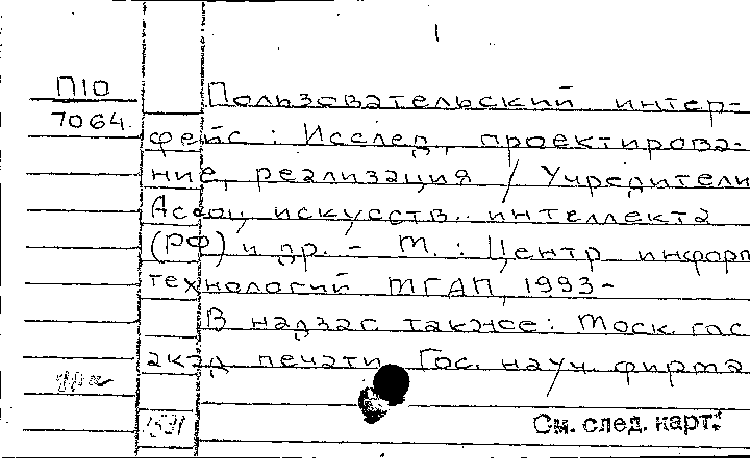 1
П10
7064
Пользовательский интер-
фейс : Исслед., проектирова-
ние, реализация / Учредители
Ассоц. искусств. интеллекта
(РФ) и др. - М. : Центр информ
технологий МГАП, 1993-
В надзаг также: Моск. гос
акад печати, Гос. науч. фирма
См. след. карт.